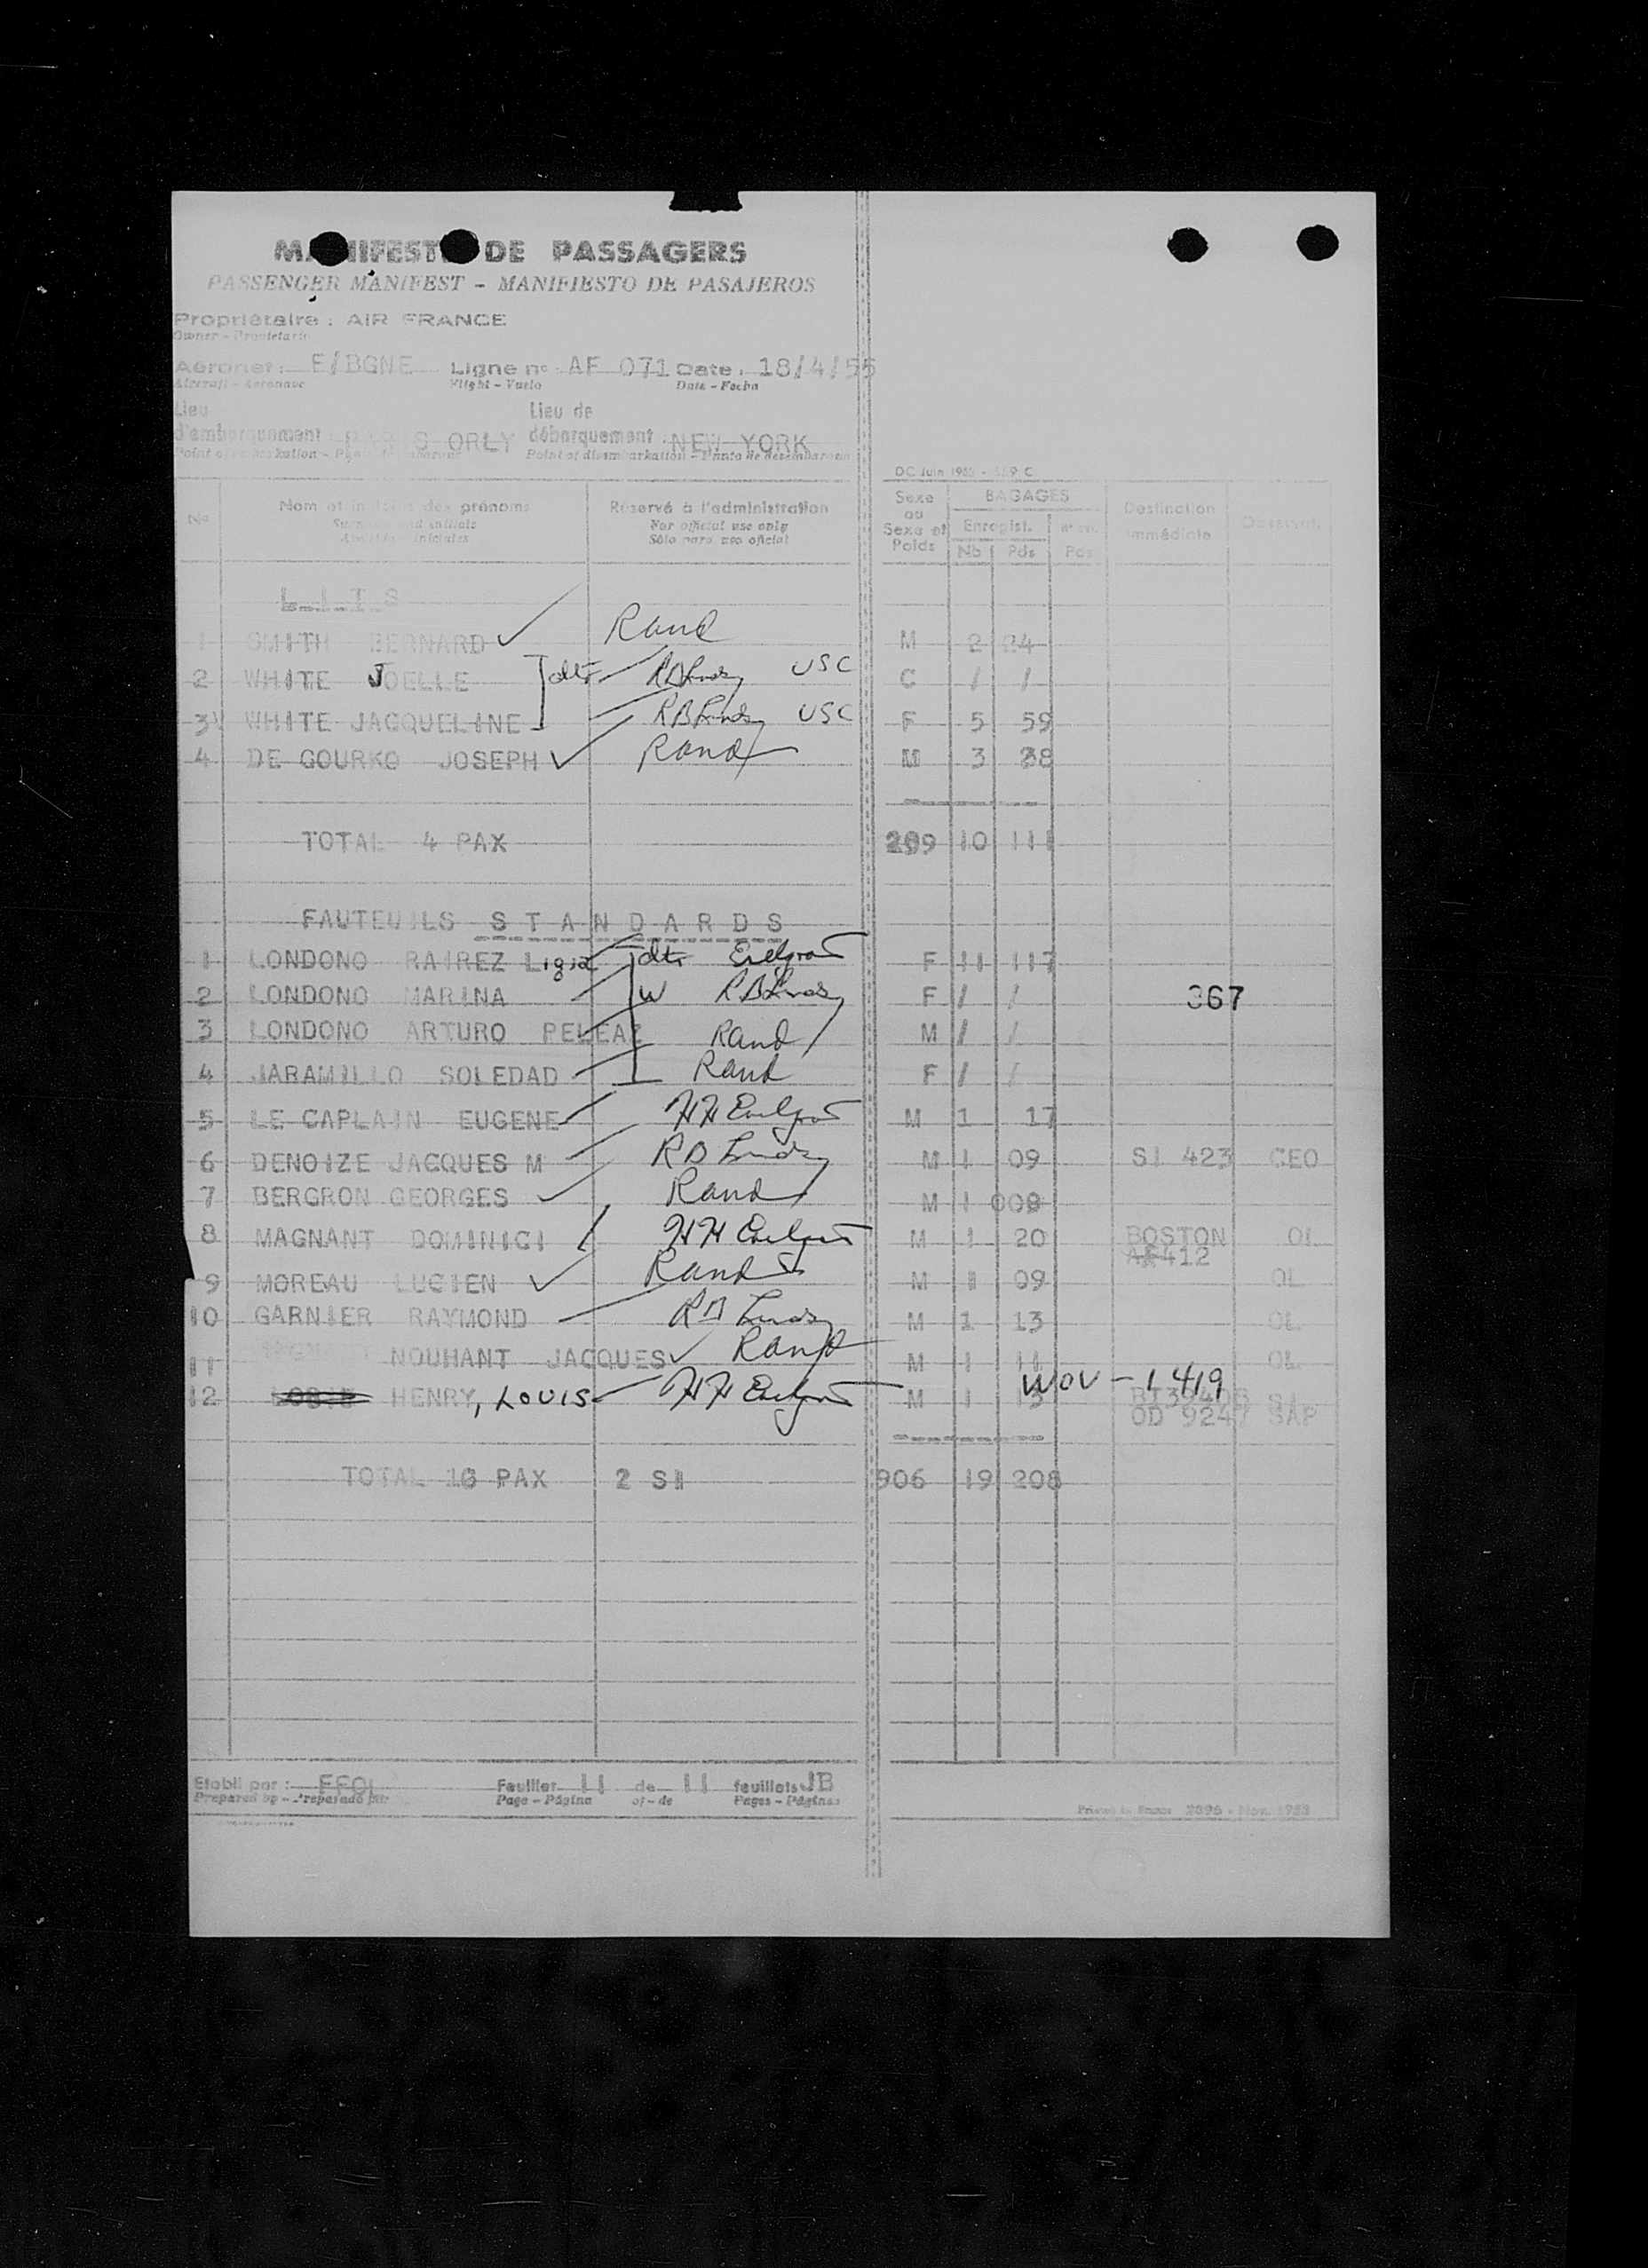 MANIFESTE DE PASSAGERS
PASSENGER MANIFEST - MANIFIESTO DE PASAJEROS
Propriétaire : AIR FRANCE
Owner - Propietario
Aéronef : F/BGNE Ligne n° AF 071 Date : 18/4/55
Aircraft - Aeronave Flight - Vuelo Date - Fecha
Lieu d'embarquement PARIS ORLY Lieu de débarquement : NEW YORK
Point of disembarkation - Punto de desembarque
DC Juin
N° Nom et initiales des prénoms Réservé à l'administration Sexe ou Sexe et Poids BAGAGES Destination immédiate Observat.
For official use only
Sólo para uso oficial
Enregist. Nb Pds Pds
L I T S
1 SMITH BERNARD Rand M 2 24
2 WHITE JOELLE dtr USC C / /
3 WHITE JACQUELINE USC F 5 59
4 DE GOURKO JOSEPH Rand M 3 28
TOTAL 4 PAX 10 111
FAUTEUILS S T A N D A R D S
1 LONDONO RAIREZ Ligia dtr F 11 117
2 LONDONO MARINA W F / / 367
3 LONDONO ARTURO PELEAZ Rand M / /
4 JARAMILLO SOLEDAD Rand F / /
5 LE CAPLAIN EUGENE M 1 17
6 DENOIZE JACQUES M M 1 09 SI 423 CEO
7 BERGRON GEORGES Rand M 1 009
8 MAGNANT DOMINICI M 1 20 BOSTON OL
AF412
9 MOREAU LUCIEN Rand M 1 09 OL
10 GARNIER RAYMOND M 1 13 OL
11 NOUHANT JACQUES Rand M 1 11 OL
12 HENRY, LOUIS M 1 13 WOV - 1419 SI
OD 9247 SAP
TOTAL 10 PAX 2 SI 906 19 208
Etabli par : Feuillet 11 de 11 feuillets JB
Prepared by - Preparado por Page - Página of - de Pages - Páginas
Printed in France Nov. 1953